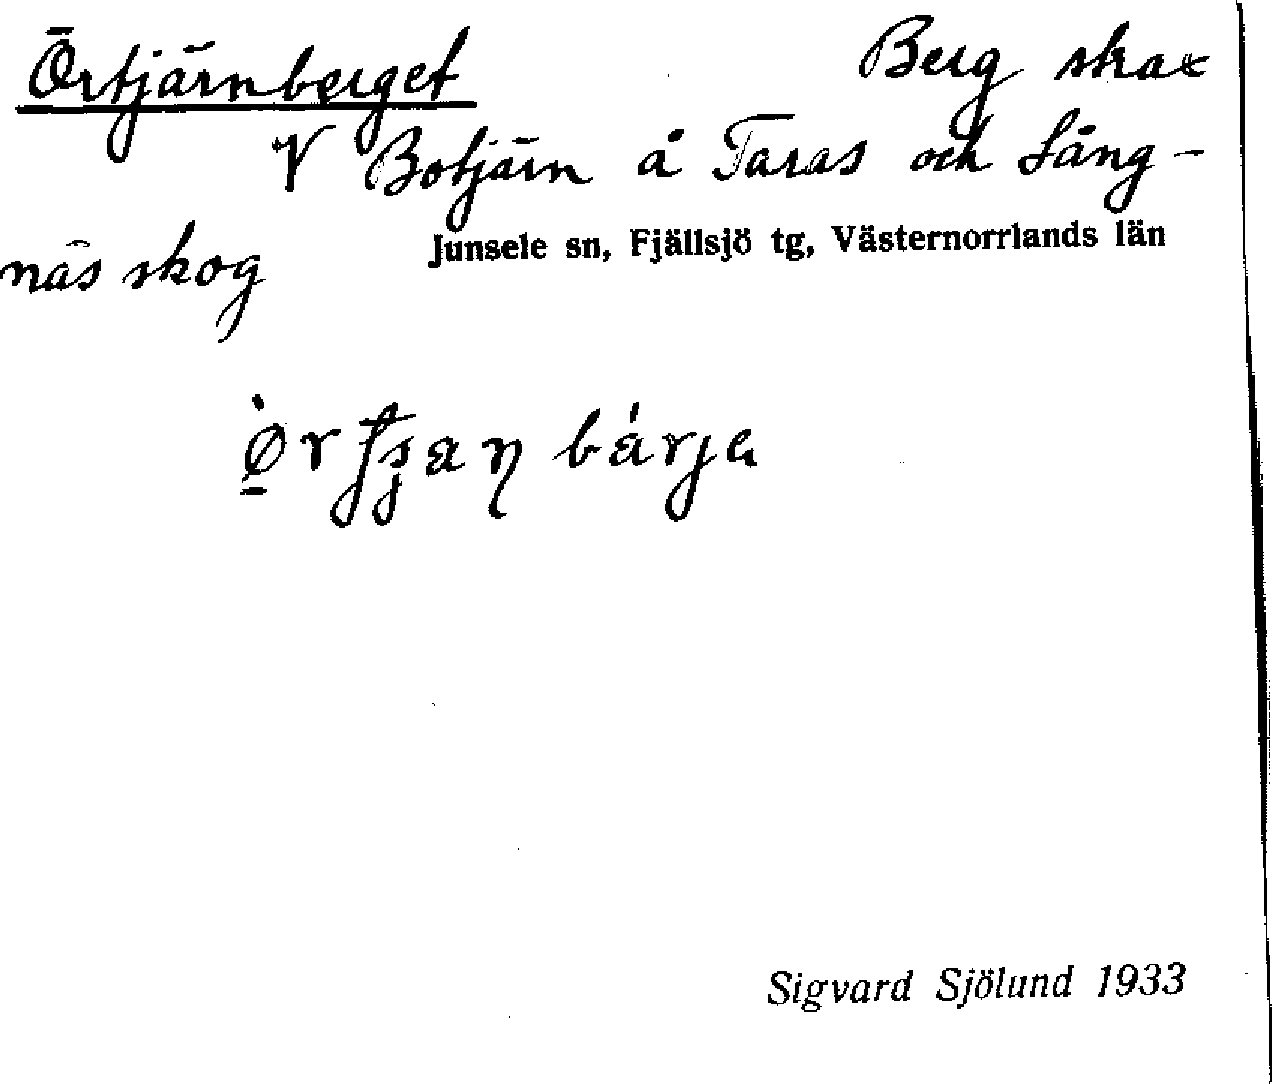 Örtjärnberget Berg skax
V Botjärn å Taras och Lång-
näs skog
Junsele sn, Fjällsjö tg, Västernorrlands län
Sigvard Sjölund 1933